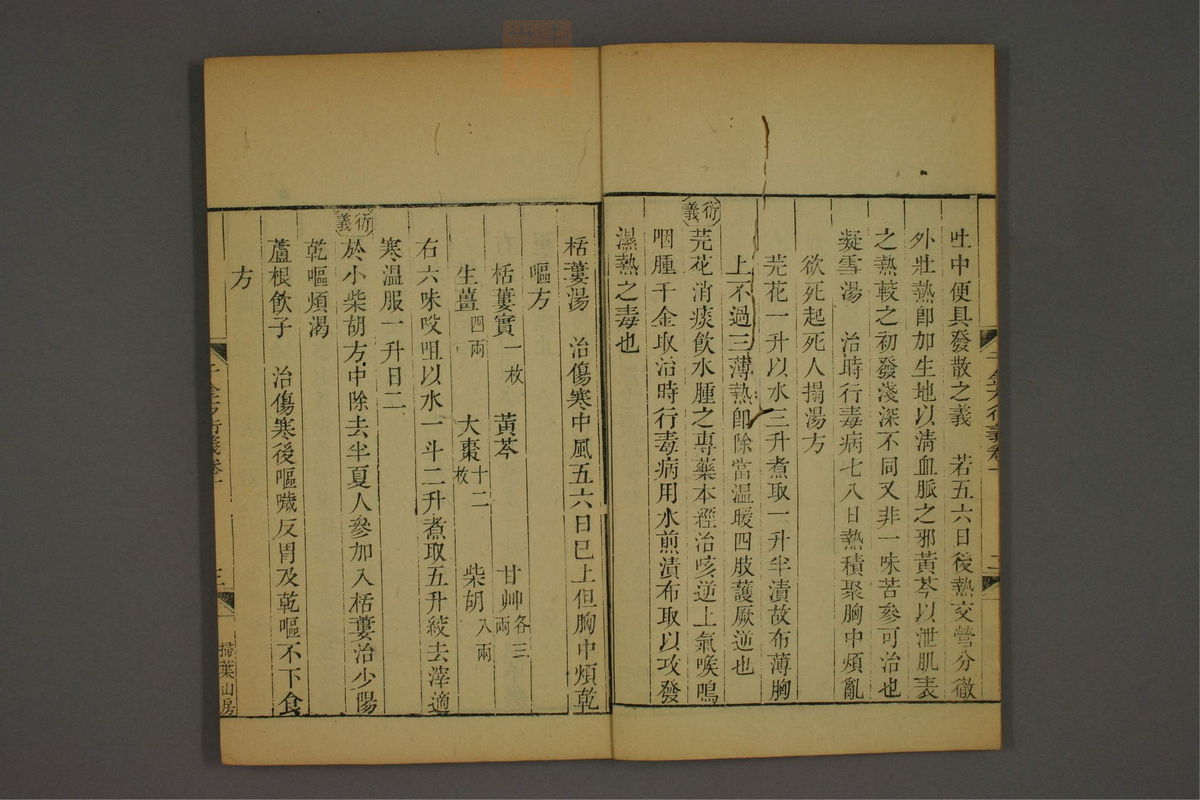 吐中便具發散之義　若五六日後熱交營分徹
外壯熱卽加生地以清血脈之邪黃芩以泄肌表
之熱較之初發淺深不同又非一味苦參可治也
凝雪湯　治時行毒病七八日熱積聚胸中煩亂
欲死起死人搨湯方
芫花一升以水三升煮取一升半漬故布薄胸
上不過三薄熱卽除當温暖四肢護厥逆也
衍義
芫花消痰飲水腫之專藥本經治咳逆上氣喉鳴
咽腫千金取治時行毒病用水煎漬布取以攻發
濕熱之毒也
栝蔞湯　治傷寒中風五六日已上但胸中煩乾
嘔方
栝蔞實一枚　黃芩　甘艸各三兩
生薑四兩　大棗十二枚　柴胡八兩
右六味㕮咀以水一斗二升煮取五升絞去滓適
寒温服一升日二
衍義
於小柴胡方中除去半夏人參加入栝蔞治少陽
乾嘔煩渴
蘆根飲子　治傷寒後嘔噦反胃及乾嘔不下食
方
三
掃葉山房